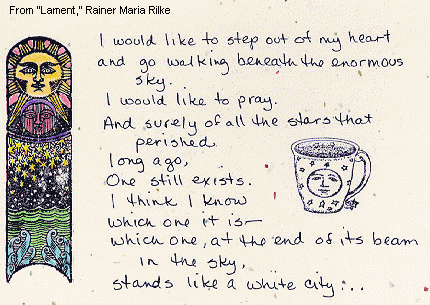 From "Lament," Rainer Maria Rilke
I would like to step out of my heart
and go walking beneath the enormous
sky.
I would like to pray.
And surely of all the stars that
perished
long ago,
One still exists.
I think I know
which one it is—
which one, at the end of its beam
in the sky,
stands like a white city...